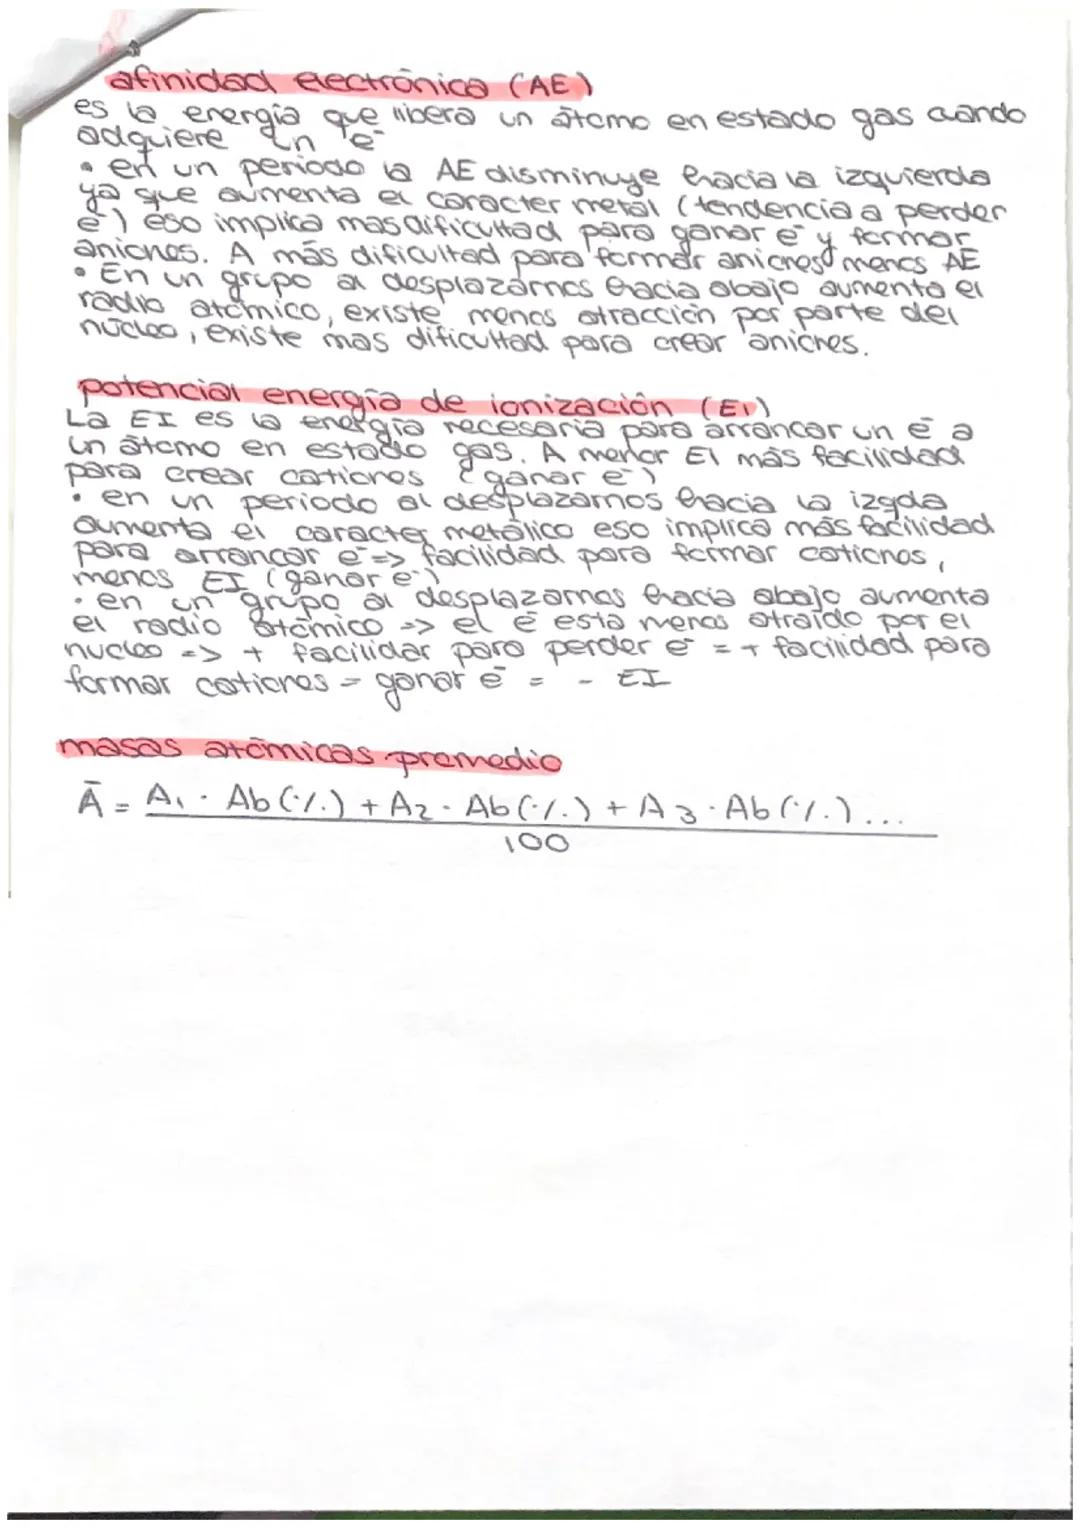 afinidad electrónica (AE)
es la energía que libera un átomo en estado gas cuando
adquiere un e⁻
• en un periodo la AE disminuye hacia la izquierda
ya que aumenta el caracter metal (tendencia a perder
e⁻) eso implica mas dificultad para ganar e⁻ y formar
aniones. A más dificultad para formar aniones menos AE
• En un grupo al desplazarnos hacia abajo aumenta el
radio atómico, existe menos atracción por parte del
núcleo, existe mas dificultad para crear aniones.
potencial energía de ionización (EI)
La EI es la energía necesaria para arrancar un e⁻ a
un átomo en estado gas. A menor EI más facilidad
para crear cationes (ganar e⁻)
• en un periodo al desplazarnos hacia la izqda
aumenta el caracter metálico eso implica más facilidad
para arrancar e⁻ => facilidad para formar cationes,
menos EI (ganar e⁻)
• en un grupo al desplazarnos hacia abajo aumenta
el radio atómico => el e⁻ está menos atraído por el
nucleo => + facilidar para perder e⁻ = + facilidad para
formar cationes = ganar e⁻ = - EI
masas atómicas promedio
Ā = A₁ · Ab(%) + A₂ · Ab(%) + A₃ · Ab(%)...
100